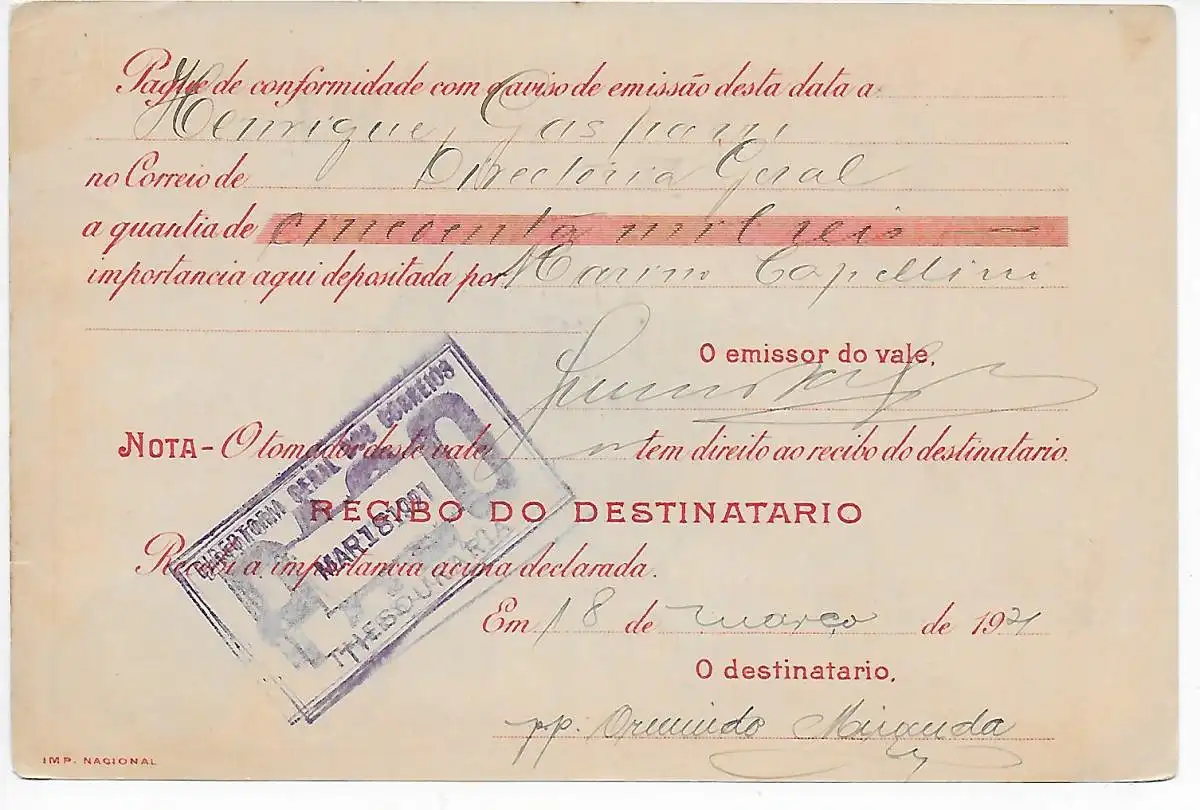 Pague de conformidade com o aviso de emissão desta data a
Henrique Gaspari
no Correio de Directoria Geral
a quantia de cincoenta mil reis —
importancia aqui depositada por Marino Capellini
O emissor do vale,
NOTA - O tomador deste vale tem direito ao recibo do destinatario.
RECIBO DO DESTINATARIO
Recebi a importancia acima declarada.
Em 18 de março de 1921
O destinatario,
pp. Miranda
IMP. NACIONAL
DIRECTORIA GERAL DOS CORREIOS
PAGO
MAR 18 1921
THESOURARIA